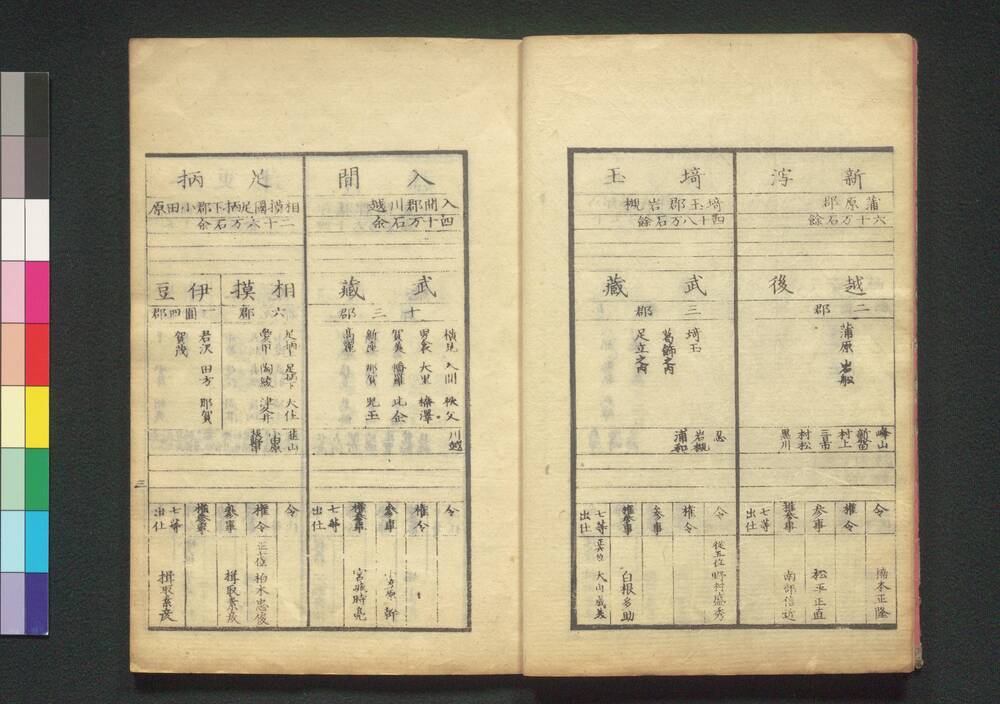 新潟
蒲原郡
六十万石餘
越後
二郡
蒲原 岩舩
峰山
新発田
村上
三日市
村松
黒川
令
権令
参事
権参事
七等出仕
松平正直
南部信近
埼玉
埼玉郡岩槻
四十八万石餘
武蔵
三郡
埼玉
葛飾之内
足立之内
忍
岩槻
浦和
令
権令
参事
権参事
七等出仕
従五位 野村盛秀
白根多助
入間
入間郡川越
四十万石余
武蔵
十三郡
横見 入間 秩父
男衾 大里 榛澤
賀美 幡羅 比企
新座 那賀 児玉
高麗
川越
令
権令
参事
権参事
七等出仕
小笠原 幹
宮城時亮
足柄
相摸國足柄下郡小田原
二十六万石余
相摸
六郡
足柄上 足柄下 大住
愛甲 淘綾 津井
韮山
小田原
伊豆
一圓四郡
君沢 田方 那賀
賀茂
令
権令
参事
権参事
七等出仕
正六位 柏木忠俊
楫取素彦
楫取素彦
三